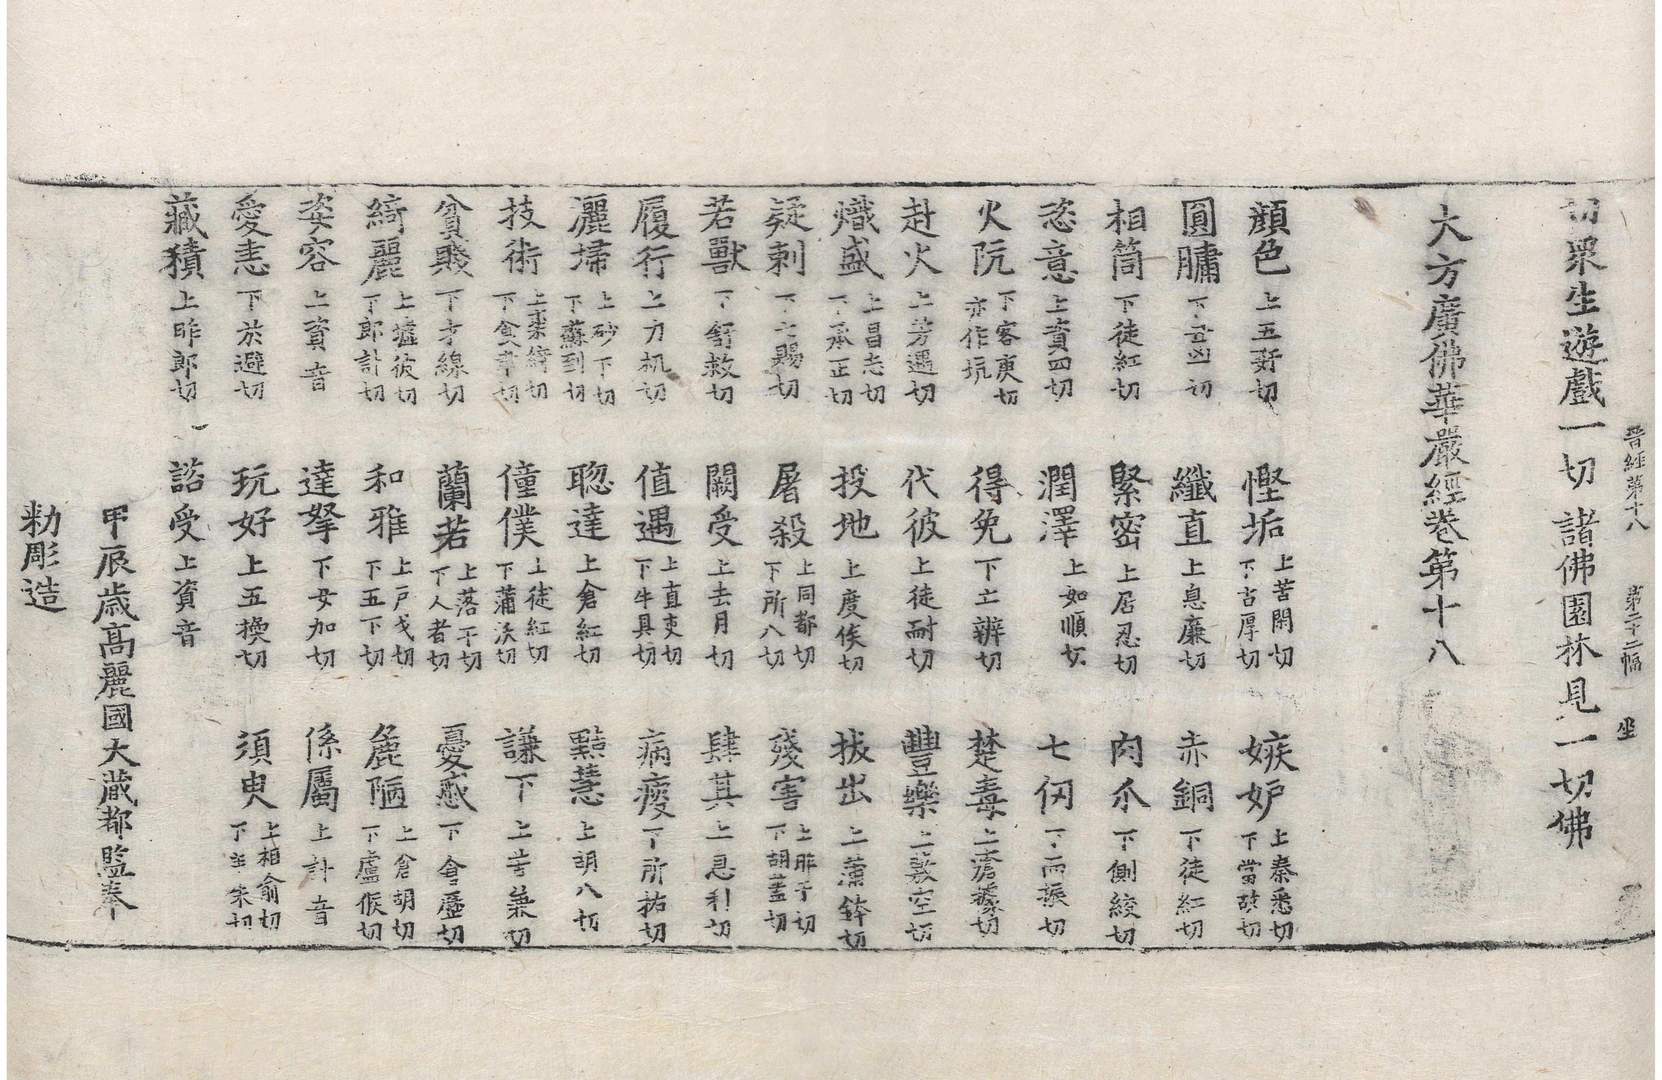 切衆生遊戲一切諸佛園林見一切佛
晉經第十八 第二十二幅 坐
大方廣佛華嚴經卷第十八
顔色 上五姧切 慳垢 上苦閑切下古厚切 嫉妒 上秦悉切下當故切
圓𦟛 下丑凶切 纖直 上息廉切 赤銅 下徒紅切
相筒 下徒紅切 緊密 上居忍切 肉爪 下側絞切
恣意 上資四切 潤澤 上如順切 七仞 下而振切
火阬 下客庚切亦作坑 得免 下亡辨切 楚毒
赴火 上芳遇切 代彼 上徒耐切 豐樂 上敷空切
熾盛 上昌志切下承正切 投地 上度侯切 拔出 上蒲鉢切
疑刺 下七賜切 屠殺 上同都切下所八切 殘害 上昨干切下胡蓋切
若獸 下舒救切 闕受 上去月切 肆其 上息利切
履行 上力机切 值遇 上直吏切下牛具切 病瘦 下所祐切
灑掃 上砂下切下蘇到切 聦達 上倉紅切 黠慧 上胡八切
技術 上渠綺切下食聿切 僮僕 上徒紅切下蒲沃切 謙下 上苦兼切
貧賤 下才線切 蘭若 上落干切下人者切 憂慼 下倉歷切
綺麗 上墟彼切下郎計切 和雅 上戶戈切下五下切 麁陋 上倉胡切下盧候切
姿容 上資音 達拏 下女加切 係屬 上計音
愛恚 下於避切 玩好 上五換切 須臾 上相俞切
藏積 上昨郎切 諮受 上資音
甲辰歳高麗國大藏都監奉
勑彫造